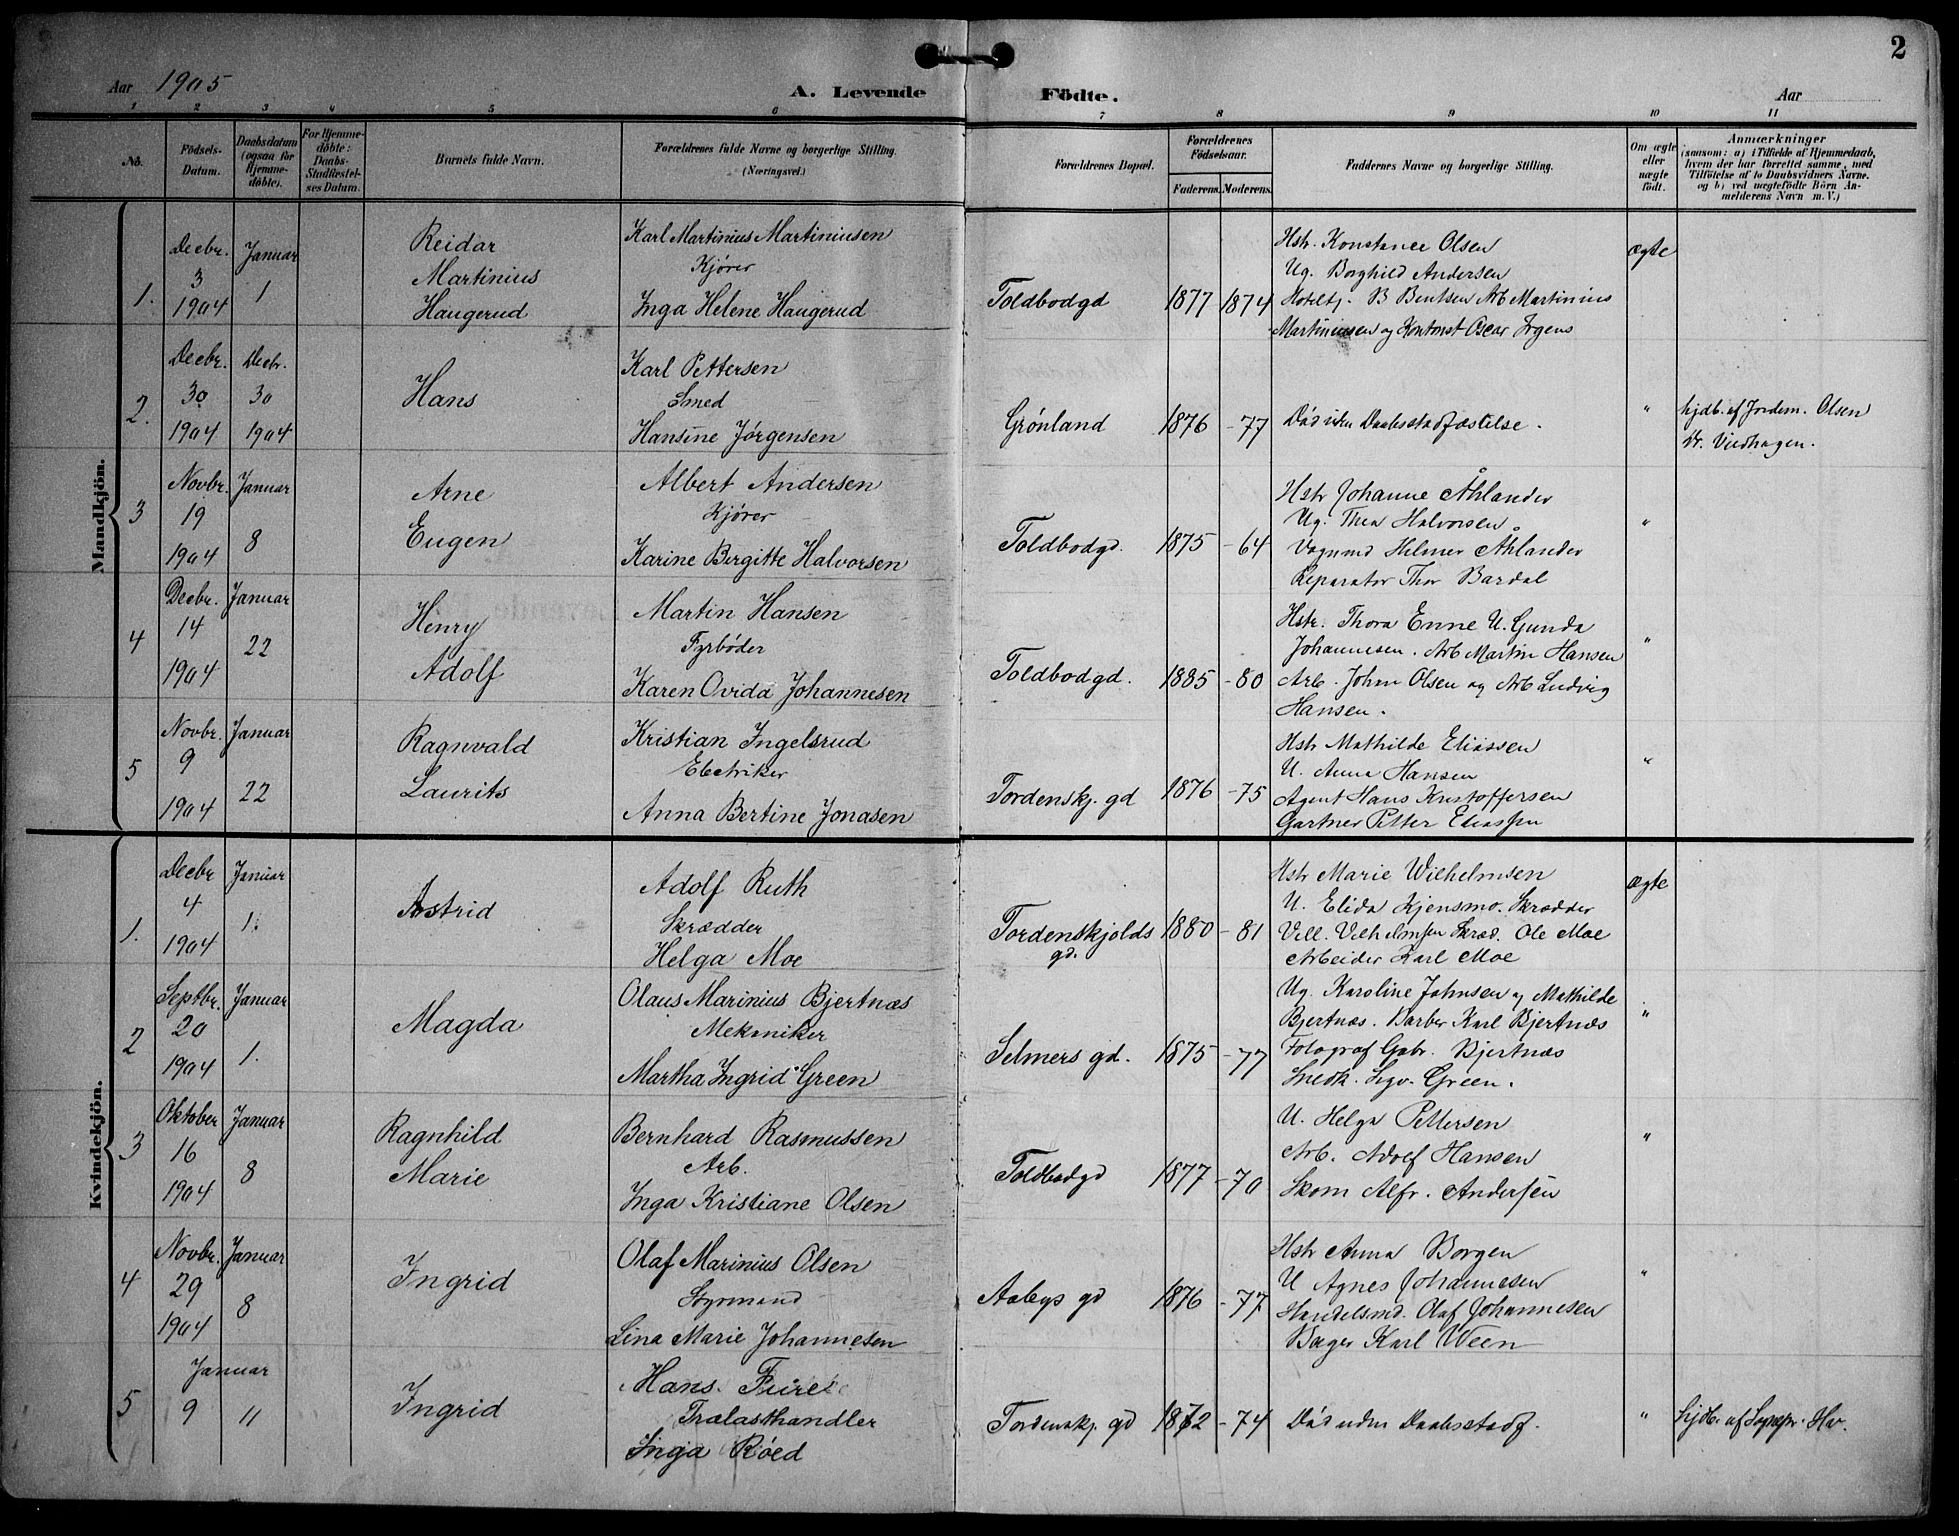 2
Aar 1905
A. Levende Födte.
Aar
1 2 3 4 5 6 7 8 9 10 11
No.
Födsels-Datum.
Daabsdatum (ogsaa for Hjemmedøbte).
For Hjemmedöbte: Daabs-Stadfæstelses Datum.
Barnets fulde Navn.
Forældrenes fulde Navne og borgerlige Stilling. (Næringsvei.)
Forældrenes Bopæl.
Forældrenes Födselsaar.
Faderens. Moderens.
Faddernes Navne og borgerlige Stilling.
Om ægte eller uægte födt.
Anmærkninger
(saasom: a) i Tilfælde af Hjemmedaab, hvem der har forrettet samme, med Tilföielse af to Daabsvidners Navne. og b) ved uægtefödte Börn Anmelderens Navn m. V.)
Mandkjön.
1.
Decbr. 3 1904
Januar 1
Reidar
Martinius
Haugerud
Karl Martinius Martiniusen
Kjører
Inga Helene Haugerud
Toldbodgd
1877 1874
Hstr. Konstance Olsen
Ug. Borghild Andersen
Hotelbj. B Bentsen Arb Martinius
Martiniusen og Kontorist Oscar Jrgens
ægte
2.
Decbr. 30 1904
Decbr. 30 1904
Hans
Karl Pettersen
Smed
Hansine Jørgensen
Grønland
1876 -77
Død uden Daabsstadfæstelse.
"
hjdb. af Jordem. Olsen
3
Novbr. 19 1904
Januar 8
Arne
Eugen
Albert Andersen
Kjører
Karine Birgitte Halvorsen
Toldbodgd.
1875 -64
Hstr Johanne Åhlander
Ug. Thea Halvorsen
Vognmd Helmer Åhlander
Reparatør Thor Bardal
"
4
Decbr. 14 1904
Januar 22
Henry
Adolf
Martin Hansen
Fyrbøder
Karen Ovida Johannesen
Toldbodgd.
1885 -80
Hstr. Thora Enne U. Gunda
Johannesen. Arb Martin Hansen
Arb. Johan Olsen og Arb Ludvig
Hansen.
"
5
Novbr. 9 1904
Januar 22
Ragnvald
Laurits
Kristian Ingelsrud
Electriker
Anna Bertine Jonasen
Tordenskj. gd
1876 -75
Hstr Mathilde Eliassen
U. Anna Hansen
Agent Hans Kristoffersen
Gartner Petter Eliassen
"
Kvindekjön.
1.
Decbr 4 1904
Januar 1.
Astrid
Adolf Ruth
Skrædder
Helga Moe
Tordenskjolds
gd.
1880 -81
Hstr Marie Wilhelmsen
U. Elida Kjensmo. Skrædder
Vilh. Vilhelmsen Skræd. Ole Moe
Arbeider Karl Moe
ægte
2
Septbr. 20 1904
Januar 1.
Magda
Olaus Marinius Bjertnæs
Mekaniker
Martha Ingrid Green
Selmers gd.
1875 -77
Ug. Karoline Johnsen og Mathilde
Bjertnæs. Barber Karl Bjertnæs
Fotograf Gabr. Bjertnæs
Snedk. Sigv. Green.
"
3
Oktober 16 1904
Januar 8
Ragnhild
Marie
Bernhard Rasmussen
Arb.
Inga Kristiane Olsen
Toldbodgd
1877 -70
U. Helga Pettersen
Arb. Adolf Hansen
Skom Alfr. Andersen
"
4
Novbr. 29 1904
Januar 8
Ingrid
Olaf Marinius Olsen
Styrmand
Lina Marie Johannesen
Aabys gd
1876 -77
Hstr Anna Borgen
U Agnes Johannesen
Handelsmd. Olaf Johannesen
Bager Karl Ween
"
5
Januar 9 11
Ingrid
Hans. Fure
Trælasthandler
Inga Röed
Tordenskj. gd
1872 -74
Død uden Daabsstadf.
"